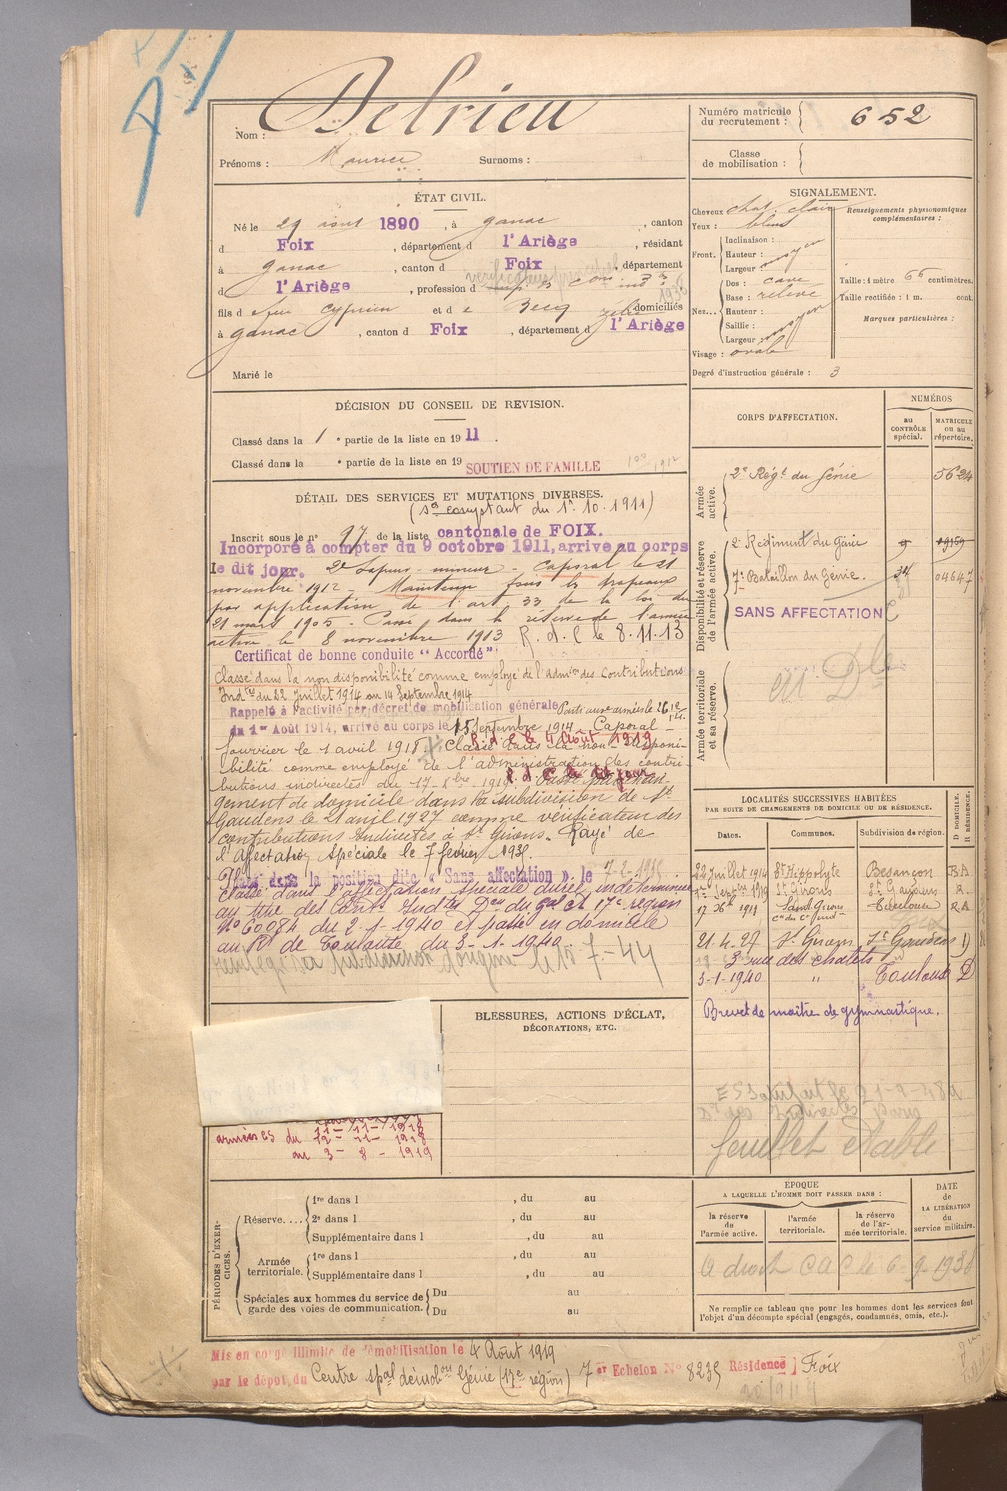 Nom : Delrieu
Prénoms : Maurice Surnoms :
Numéro matricule du recrutement : 652
Classe de mobilisation :
ÉTAT CIVIL.
Né le 29 août 1890, à Ganac, canton
d Foix, département d l'Ariège, résidant
à Ganac, canton d Foix, département
d l'Ariège, profession d
fils d e feu Cyprien et d e Becq Zélie domiciliés
à Ganac, canton d Foix, département d l'Ariège
Marié le
SIGNALEMENT.
Cheveux chat. clair
Yeux : bleus
Front. Inclinaison :
Hauteur : moyen
Largeur :
Nez... Dos : cave
Base : relevé
Hauteur :
Saillie : moyen
Largeur :
Visage : ovale
Renseignements physionomiques complémentaires :
Taille : 1 mètre 66 centimètres.
Taille rectifiée : 1 m. cent.
Marques particulières :
Degré d'instruction générale : 3
DÉCISION DU CONSEIL DE REVISION.
Classé dans la 1e partie de la liste en 1911.
Classé dans la e partie de la liste en 19 SOUTIEN DE FAMILLE
1912
DÉTAIL DES SERVICES ET MUTATIONS DIVERSES.
(Sce comptant du 1er.10.1911)
Inscrit sous le n° 97 de la liste cantonale de FOIX.
Incorporé à compter du 9 octobre 1911, arrive au corps
le dit jour. 2e Sapeur-mineur - Caporal le 21
novembre 1912 - Maintenu sous les drapeaux
par application de l'art 33 de la loi du
21 mars 1905 - Passé dans la réserve de l'armée
active le 8 novembre 1913 R.d.C le 8.11.13
Certificat de bonne conduite "Accordé"
Classé dans la non disponibilité comme employé de l'admion des Contributions
Indtes du 22 Juillet 1914 au 14 Septembre 1914
Rappelé à l'activité par décret de mobilisation générale Parti aux armées le
du 1er Août 1914, arrivé au corps le 15 Septembre 1914 Caporal-
fourrier le 1 avril 1918. R.d.C le 4 Août 1919 Classé dans la non disponi-
bilité comme employé de l'administration des contri-
butions indirectes du 17-8bre 1919. R.d.C le dit jour Passé par chan-
gement de domicile dans la subdivision de St
Gaudens le 21 avril 1927 comme vérificateur des
contributions Indirectes à St Girons. Rayé de
l'Affectation Spéciale le 7 février 1935.
Passé dans la position dite « Sans affectation » le 7-2-1935
Classé dans l'affectation spéciale durée indéterminée
au titre des Contr. Indtes Don du gal et 17e région
N° 60084 du 2-1-1940 et passé en domicile
au Rt de Toulouse du 3-1-1940
le 10-7-44
CORPS D'AFFECTATION.
NUMÉROS
AU CONTRÔLE spécial.
MATRICULE ou au répertoire.
Armée active.
2e Régt du Génie 5624
Disponibilité et réserve de l'armée active.
2e Régiment du Génie 9 19159
7e Bataillon du Génie. 34 04647
SANS AFFECTATION
Armée territoriale et sa réserve.
LOCALITÉS SUCCESSIVES HABITÉES
PAR SUITE DE CHANGEMENTS DE DOMICILE OU DE RÉSIDENCE.
Dates. Communes. Subdivision de région. D DOMICILE. R RÉSIDENCE.
22 Juillet 1914 St Hippolyte Besançon R.A
1er Septbre 1919 St Girons St Gaudens R.
17 8bre 1919 Saint Girons Toulouse R.A
21.4.27 St Girons St Gaudens D
3 rue des chalets
3-1-1940 " Toulouse D
Brevet de maître de gymnastique.
feuillet établi
BLESSURES, ACTIONS D'ÉCLAT, DÉCORATIONS, ETC.
11-11-1918
armées du 12-11-1918
au 3-8-1919
PÉRIODES D'EXERCICES.
Réserve.... 1re dans l , du au
2e dans l , du au
Supplémentaire dans l , du au
Armée territoriale. 1re dans l , du au
Supplémentaire dans l , du au
Spéciales aux hommes du service de garde des voies de communication. Du au
Du au
ÉPOQUE
A LAQUELLE L'HOMME DOIT PASSER DANS :
la réserve de l'armée active.
l'armée territoriale.
la réserve de l'armée territoriale.
DATE de LA LIBÉRATION du service militaire.
A droit CAC le 6-9-1936
Ne remplir ce tableau que pour les hommes dont les services font l'objet d'un décompte spécial (engagés, condamnés, omis, etc.).
Mis en congé illimité de démobilisation le 4 Août 1919
par le dépôt du Centre spal démobon Génie (17e région) 7 er Echelon N° 8235 Résidence] Foix